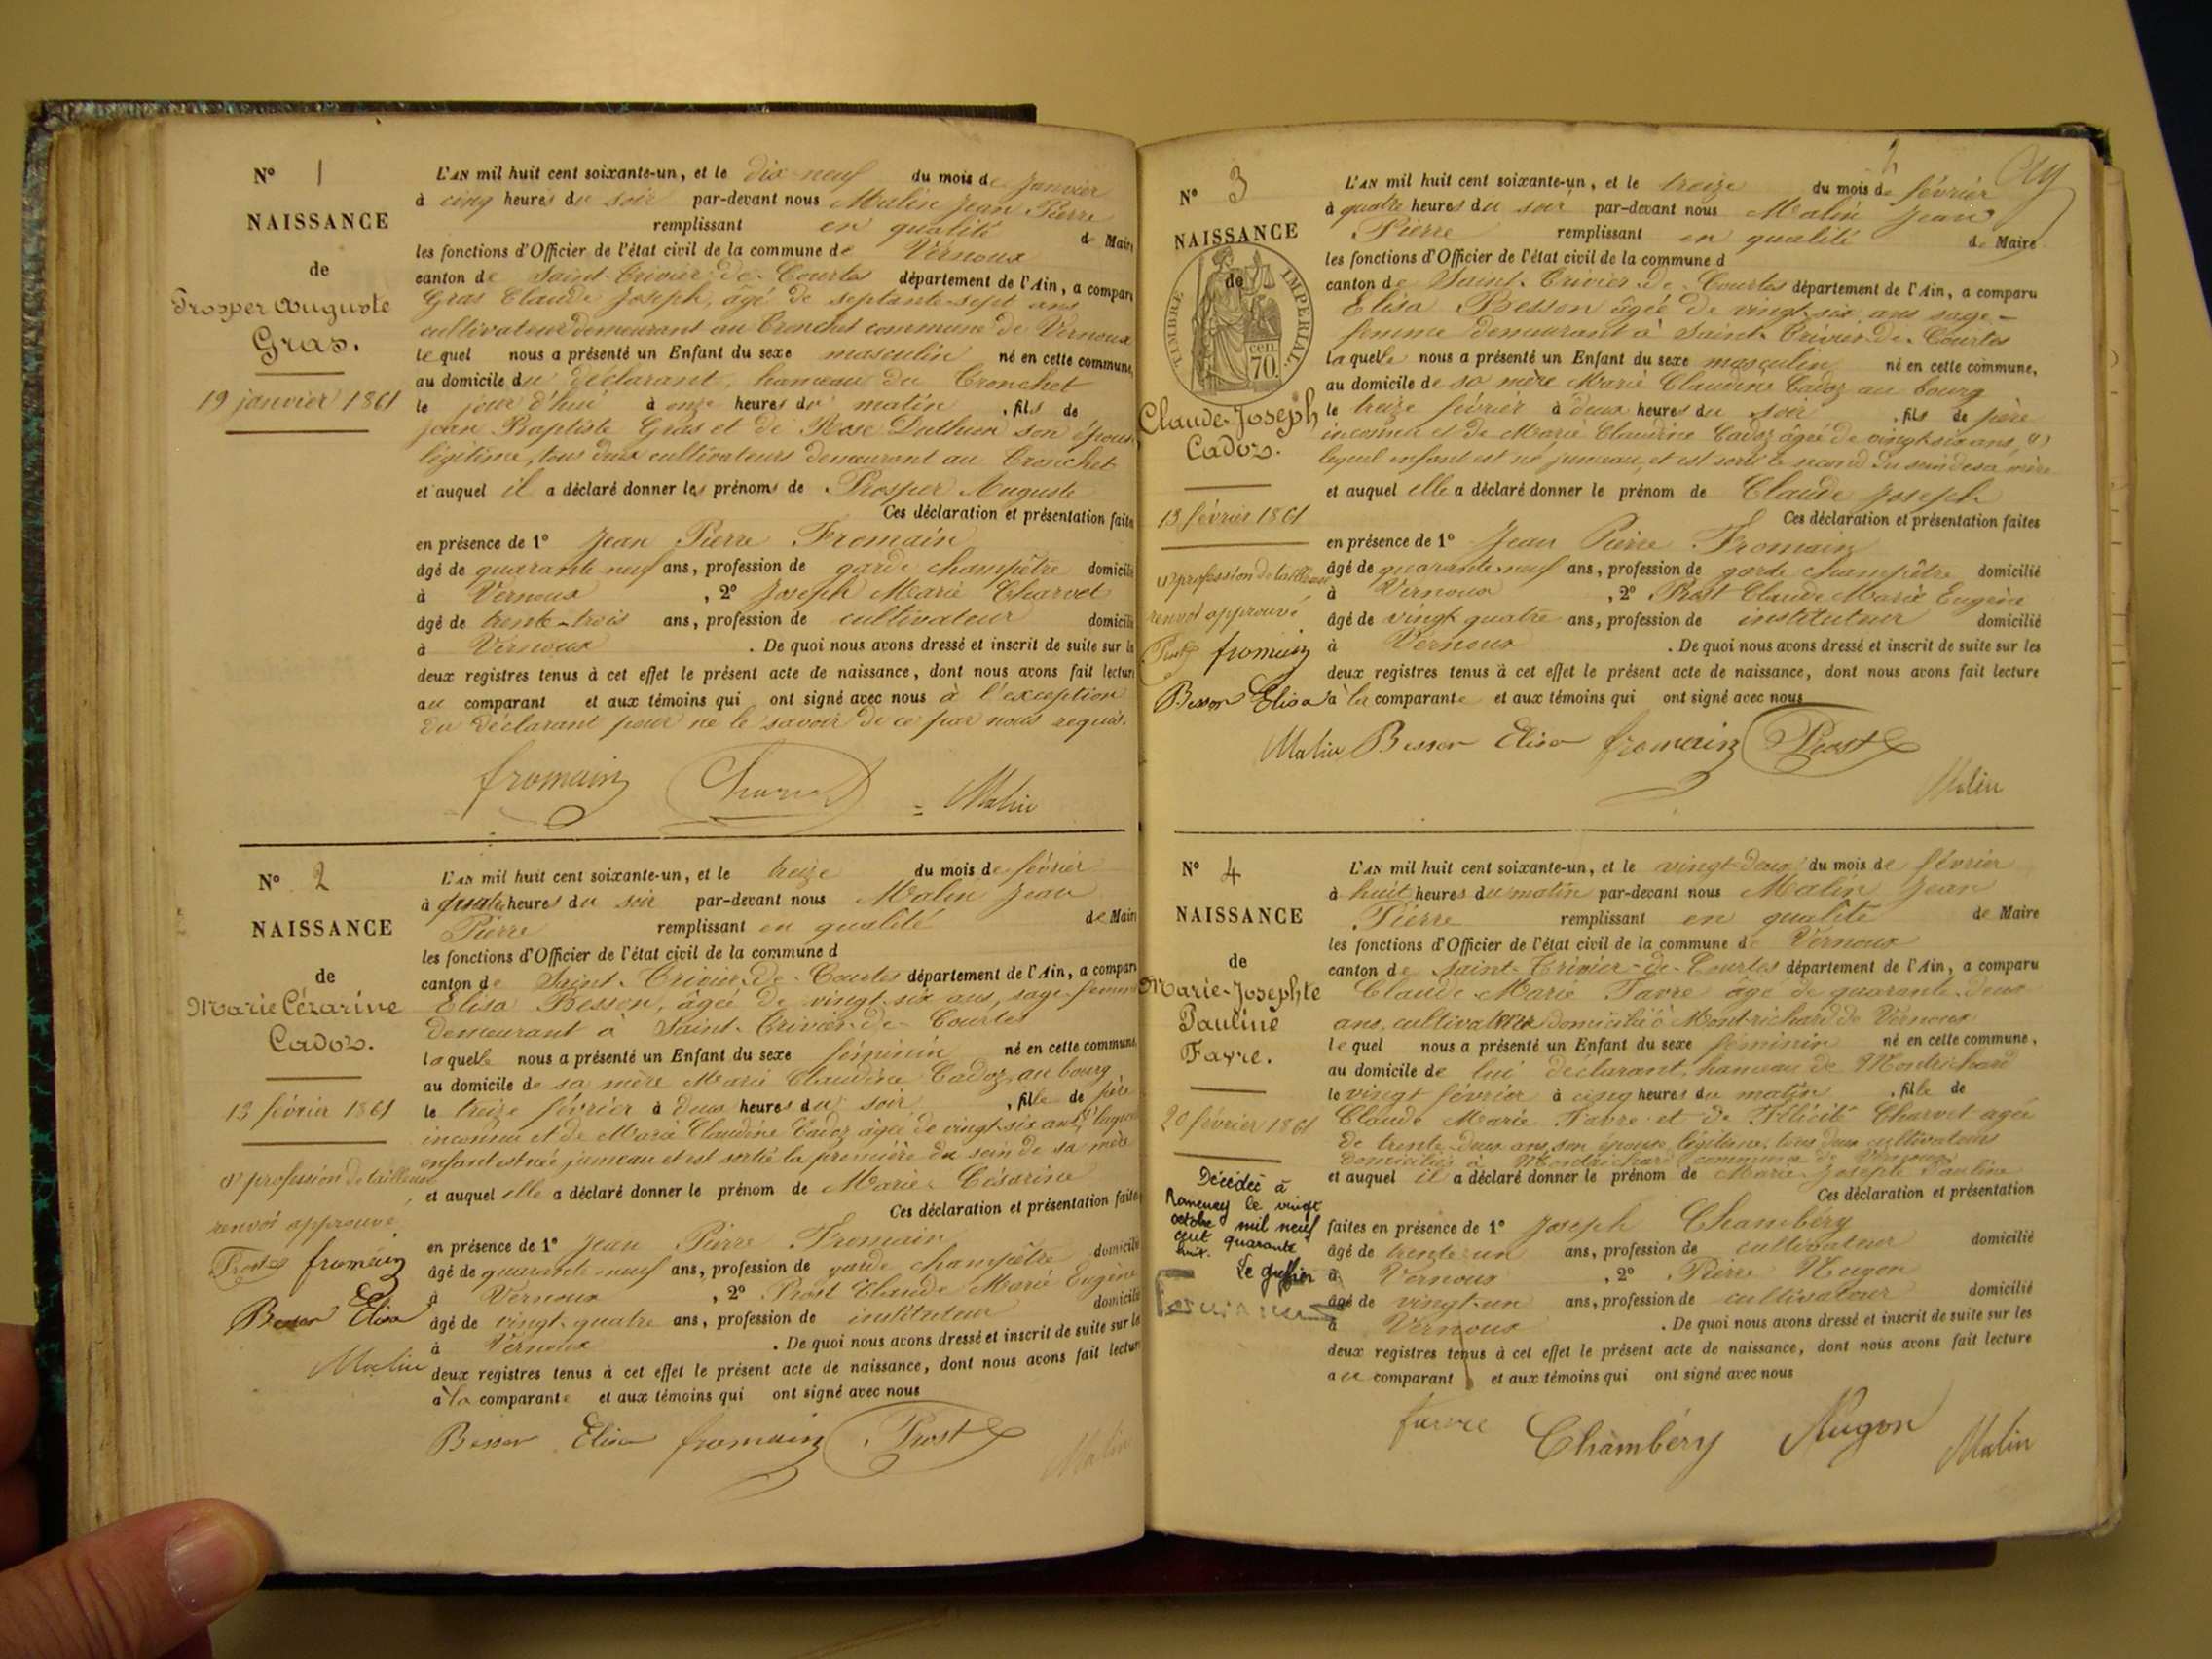 N° 1
NAISSANCE
de
Prosper Auguste
Gras.
19 janvier 1861
L'AN mil huit cent soixante-un, et le dix-neuf du mois de janvier
à cinq heures du soir par-devant nous Malin Jean Pierre
remplissant en qualité de Maire
les fonctions d'Officier de l'état civil de la commune de Vernoux
canton de Saint-Trivier-de-Courtes département de l'Ain, a comparu
Gras Claude Joseph, âgé de septante-sept ans
cultivateur demeurant au Cronchet commune de Vernoux
lequel nous a présenté un Enfant du sexe masculin né en cette commune,
au domicile du déclarant, hameau du Cronchet
le jour d'hui à onze heures du matin, fils de
Jean Baptiste Gras et de Rose son épouse
légitime, tous deux cultivateurs demeurant au Cronchet
et auquel il a déclaré donner les prénoms de Prosper Auguste
Ces déclaration et présentation faites
en présence de 1° Jean Pierre Fromain
âgé de quarante neuf ans, profession de garde champêtre domicilié
à Vernoux, 2° Joseph Marie Charvet
âgé de trente-trois ans, profession de cultivateur domicilié
à Vernoux. De quoi nous avons dressé et inscrit de suite sur les
deux registres tenus à cet effet le présent acte de naissance, dont nous avons fait lecture
au comparant et aux témoins qui ont signé avec nous à l'exception
du déclarant pour ne le savoir de ce par nous requis.
fromain Charvet Malin
N° 2
NAISSANCE
de
Marie Cézarine
Cadoz.
13 février 1861
(1) profession de tailleuse
renvoi approuvé
Prost fromain
Besson Elisa
Malin
L'AN mil huit cent soixante-un, et le treize du mois de février
à quatre heures du soir par-devant nous Malin Jean
Pierre remplissant en qualité de Maire
les fonctions d'Officier de l'état civil de la commune d
canton de Saint-Trivier-de-Courtes département de l'Ain, a comparu
Elisa Besson, âgée de vingt-six ans, sage-femme
demeurant à Saint-Trivier-de-Courtes
laquelle nous a présenté un Enfant du sexe féminin né en cette commune,
au domicile de sa mère Marie Claudine Cadoz, au bourg
le treize février à deux heures du soir, fille de père
inconnu et de Marie Claudine Cadoz âgée de vingt-six ans, (1) laquelle
enfant est née jumeau et est sortie la première du sein de sa mère
et auquel elle a déclaré donner le prénom de Marie Césarine
Ces déclaration et présentation faites
en présence de 1° Jean Pierre Fromain
âgé de quarante-neuf ans, profession de garde champêtre domicilié
à Vernoux, 2° Prost Claude Marie Eugène
âgé de vingt-quatre ans, profession de instituteur domicilié
à Vernoux. De quoi nous avons dressé et inscrit de suite sur les
deux registres tenus à cet effet le présent acte de naissance, dont nous avons fait lecture
à la comparante et aux témoins qui ont signé avec nous
Besson Elisa fromain Prost Malin
N° 3
NAISSANCE
de
TIMBRE IMPERIAL
70. cen
Claude-Joseph
Cadoz.
13 février 1861
(1) profession de tailleuse
renvoi approuvé
Prost fromain
Besson Elisa
L'AN mil huit cent soixante-un, et le treize du mois de février
à quatre heures du soir par-devant nous Malin Jean
Pierre remplissant en qualité de Maire
les fonctions d'Officier de l'état civil de la commune d
canton de Saint-Trivier-de-Courtes département de l'Ain, a comparu
Elisa Besson âgée de vingt-six ans sage-
femme demeurant à Saint-Trivier-de-Courtes
laquelle nous a présenté un Enfant du sexe masculin né en cette commune,
au domicile de sa mère Marie Claudine Cadoz au bourg
le treize février à deux heures du soir, fils de père
inconnu et de Marie Claudine Cadoz âgée de vingt-six ans, (1)
lequel enfant est né jumeau et est sorti le second du sein de sa mère
et auquel elle a déclaré donner le prénom de Claude Joseph
Ces déclaration et présentation faites
en présence de 1° Jean Pierre Fromain
âgé de quarante-neuf ans, profession de garde champêtre domicilié
à Vernoux, 2° Prost Claude Marie Eugène
âgé de vingt-quatre ans, profession de instituteur domicilié
à Vernoux. De quoi nous avons dressé et inscrit de suite sur les
deux registres tenus à cet effet le présent acte de naissance, dont nous avons fait lecture
à la comparante et aux témoins qui ont signé avec nous
Malin Besson Elisa fromain Prost
Malin
N° 4
NAISSANCE
de
Marie-Josephte
Pauline
Favre.
20 février 1861
Décédée à
Romenay le vingt
octobre mil neuf
cent quarante
huit.
Le greffier
L'AN mil huit cent soixante-un, et le vingt-deux du mois de février
à huit heures du matin par-devant nous Malin Jean
Pierre remplissant en qualité de Maire
les fonctions d'Officier de l'état civil de la commune de Vernoux
canton de Saint-Trivier-de-Courtes département de l'Ain, a comparu
Claude-Marie Favre âgé de quarante-deux
ans, cultivateur domicilié à Montrichard de Vernoux
lequel nous a présenté un Enfant du sexe féminin né en cette commune,
au domicile de lui déclarant, hameau de Montrichard
le vingt février à cinq heures du matin, fille de
Claude Marie Favre et de Félicité Charvet âgée
de trente-deux ans, son épouse légitime, tous deux cultivateurs
domiciliés à Montrichard commune de Vernoux
et auquel il a déclaré donner le prénom de Marie-Josephte Pauline
Ces déclaration et présentation
faites en présence de 1° Joseph Chambéry
âgé de trente-un ans, profession de cultivateur domicilié
à Vernoux, 2° Pierre Nugon
âgé de vingt-un ans, profession de cultivateur domicilié
à Vernoux. De quoi nous avons dressé et inscrit de suite sur les
deux registres tenus à cet effet le présent acte de naissance, dont nous avons fait lecture
au comparant et aux témoins qui ont signé avec nous
favre Chambéry Nugon Malin